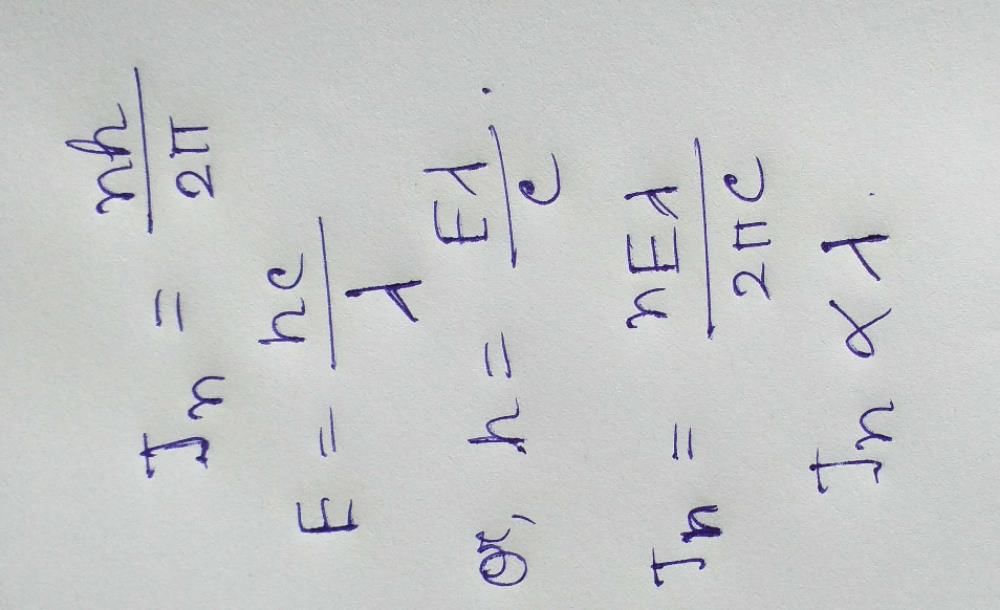 Jn = nh/2π
E = hc/λ
or, h = Eλ/c.
Jn = nEλ/2πc
Jn ∝ λ.